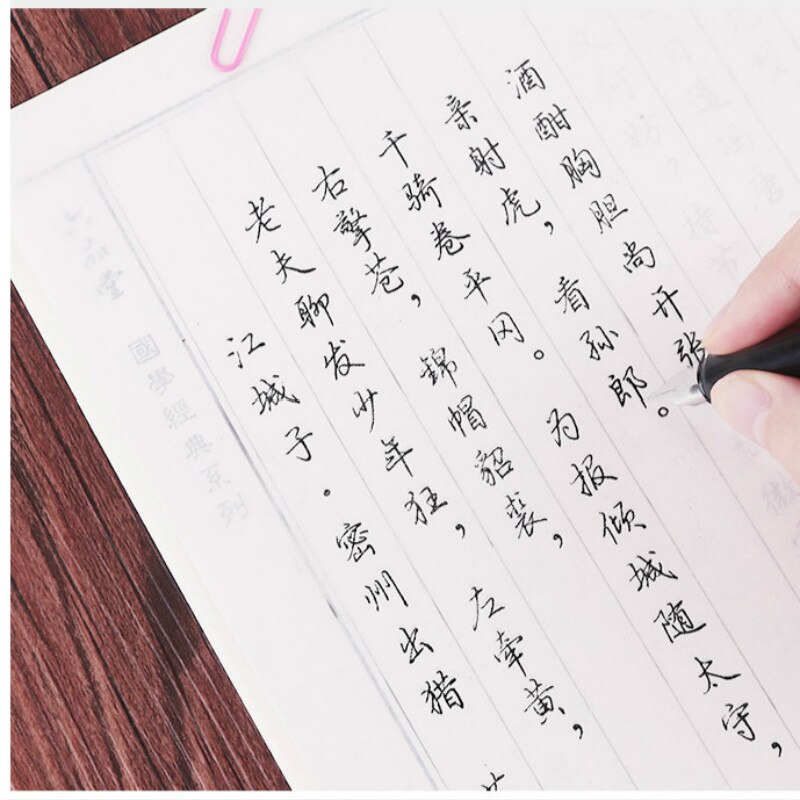 六品堂 國學經典系列
江城子·密州出猎
老夫聊发少年狂,左牵黄,
右擎苍,锦帽貂裘,
千骑卷平冈。为报倾城随太守,
亲射虎,看孙郎。
酒酣胸胆尚开张